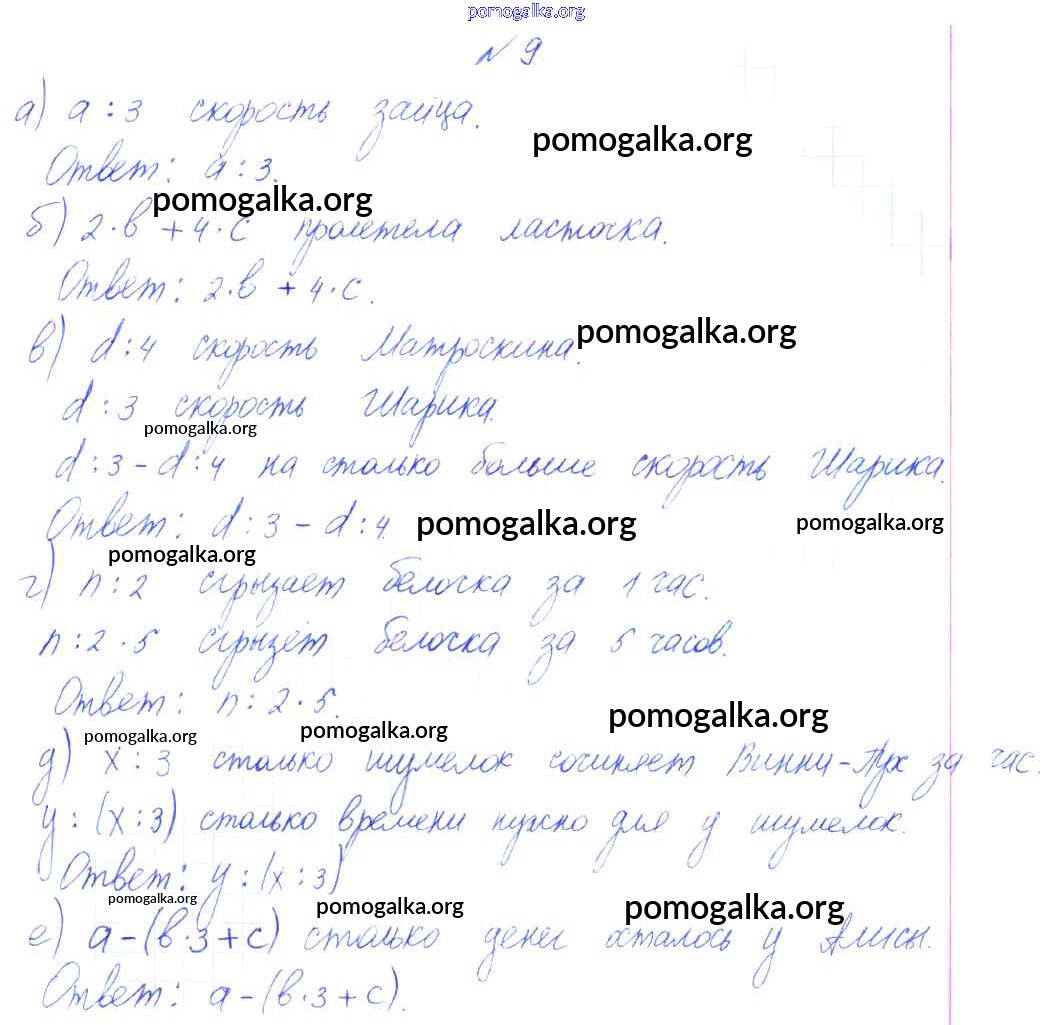 pomogalka.org
№ 9
а) a : 3 скорость зайца.
pomogalka.org
Ответ: a : 3.
pomogalka.org
б) 2 · в + 4 · с пролетела ласточка.
Ответ: 2 · в + 4 · с.
pomogalka.org
в) d : 4 скорость Матроскина.
d : 3 скорость Шарика.
pomogalka.org
d : 3 – d : 4 на столько больше скорость Шарика.
Ответ: d : 3 – d : 4.
pomogalka.org
pomogalka.org
pomogalka.org
г) n : 2 сгрызает белочка за 1 час.
n : 2 · 5 сгрызёт белочка за 5 часов.
Ответ: n : 2 · 5.
pomogalka.org
pomogalka.org
pomogalka.org
д) x : 3 столько шумелок сочиняет Винни-Пух за час.
y : (x : 3) столько времени нужно для y шумелок.
Ответ: y : (x : 3)
pomogalka.org
pomogalka.org
pomogalka.org
е) a – (в · 3 + с) столько денег осталось у Алисы.
Ответ: a – (в · 3 + с).